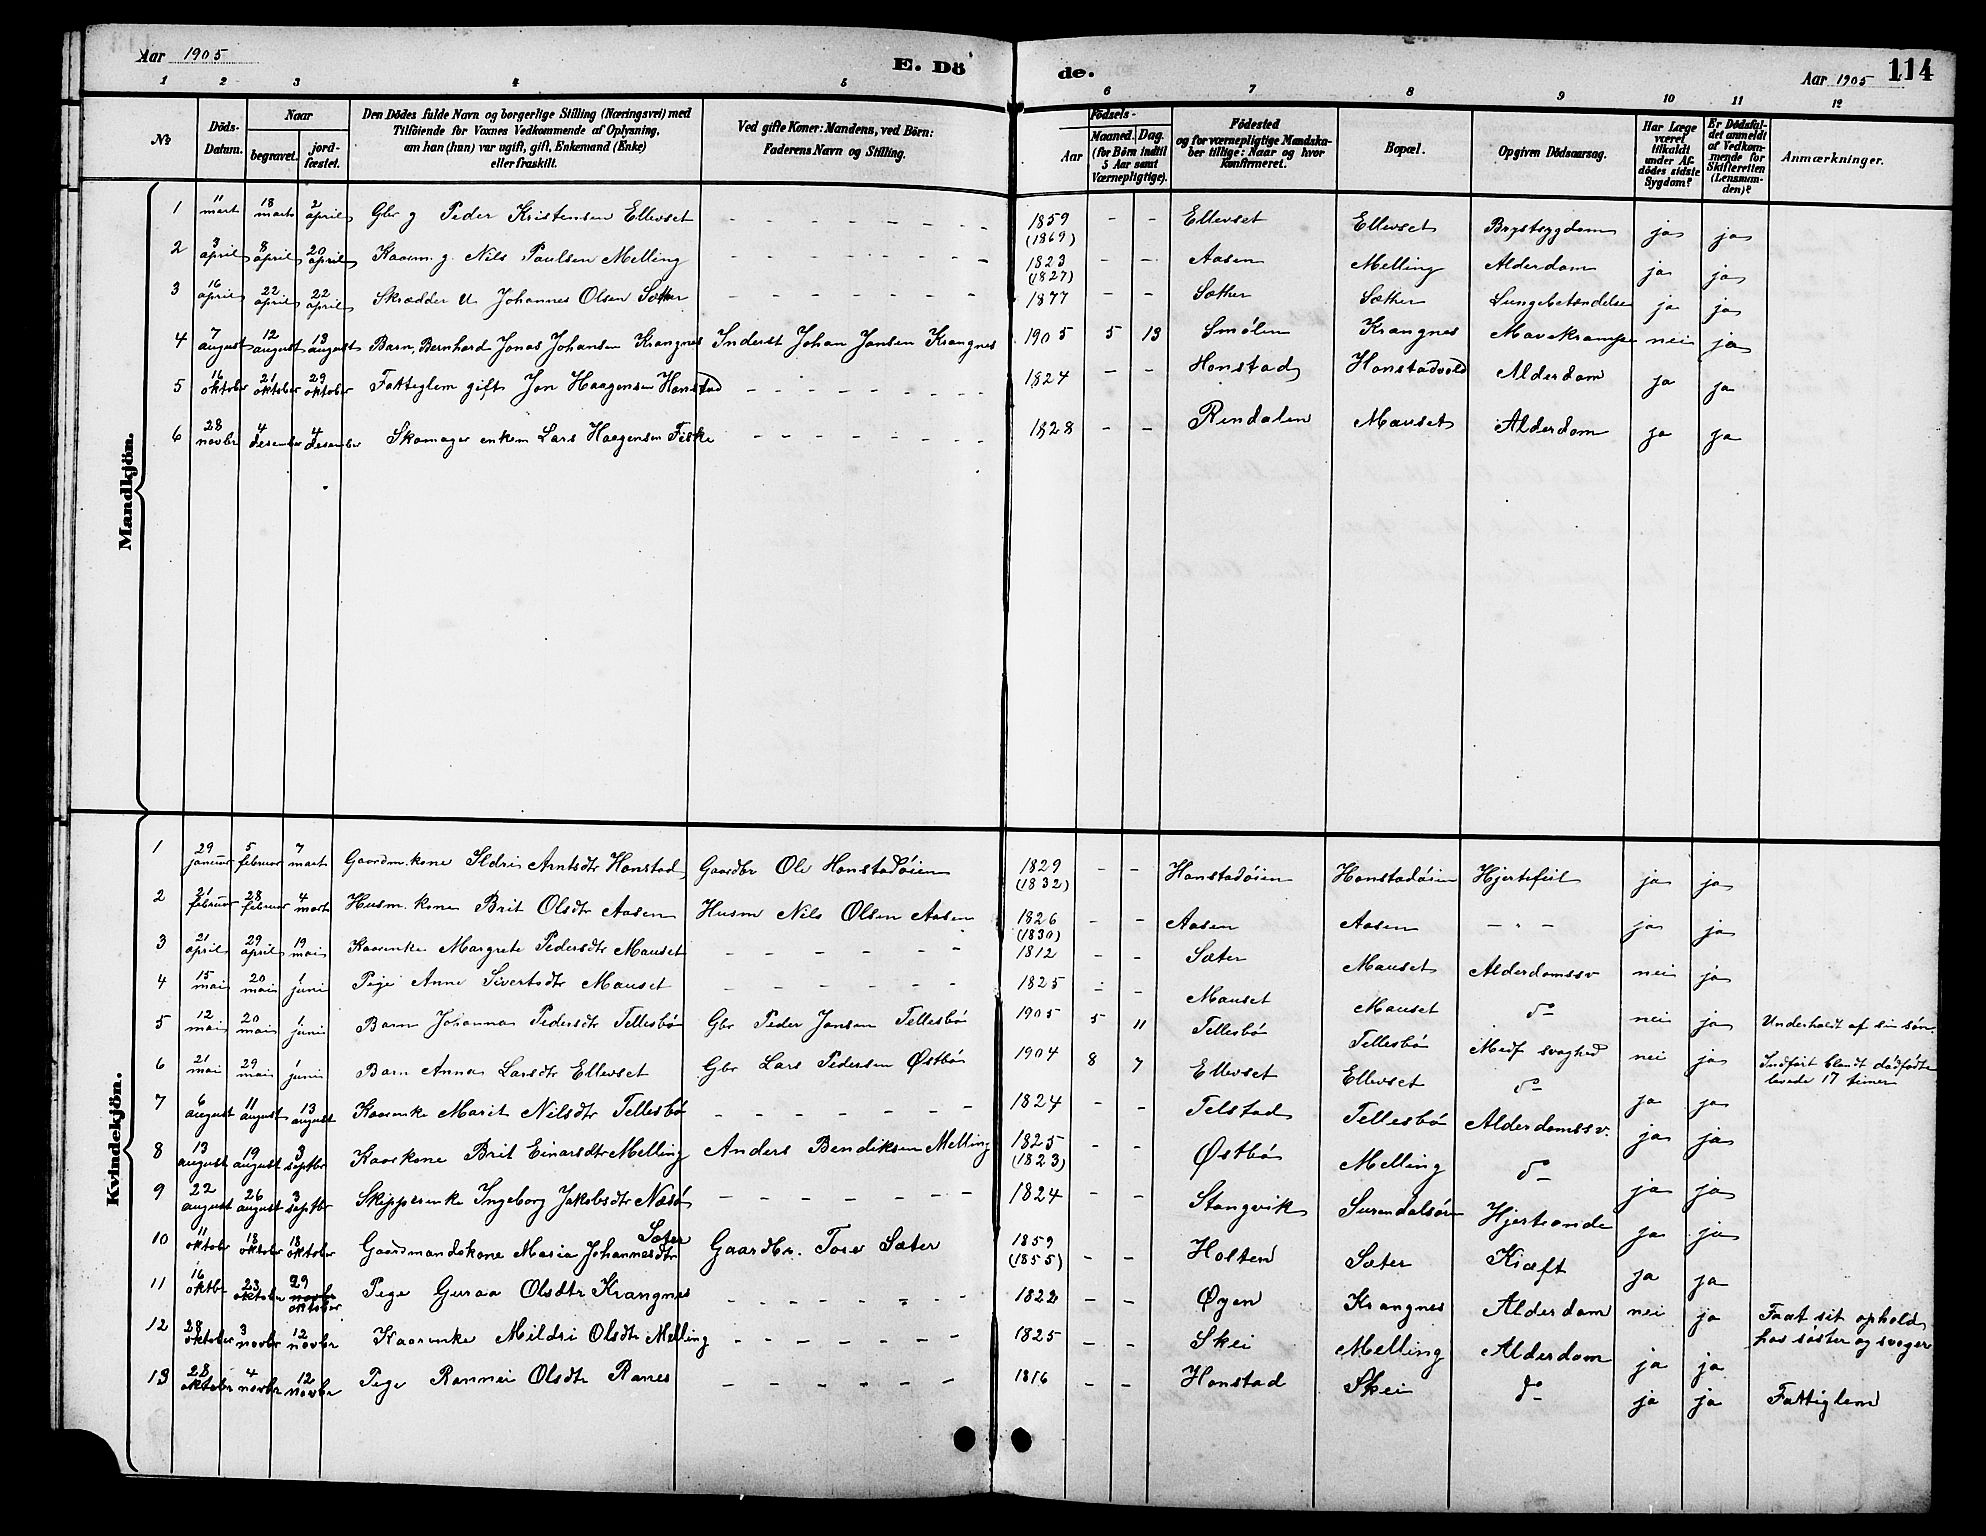 Aar 1905
E. Dö
de.
Aar 1905
114
1 2 3 4 5 6 7 8 9 10 11 12
№
Döds-Datum.
Naar
begravet.
jord-fæstet.
Den Dödes fulde Navn og borgerlige Stilling (Næringsvei) med
Tilföiende for Voxnes Vedkommende af Oplysning,
om han (hun) var ugift, gift, Enkemand (Enke)
eller fraskilt.
Ved gifte Koner: Mandens, ved Börn:
Faderens Navn og Stilling.
Födsels-
Aar
Maaned. Dag.
(for Börn indtil
5 Aar samt
Værnepligtige).
Födested
og for værnepligtige Mandska-
ber tillige: Naar og hvor
konfirmeret.
Bopæl.
Opgiven Dödsaarsag.
Har Læge
været
tilkaldt
under Af-
dödes sidste
Sygdom?
Er Dödsfal-
det anmeldt
af Vedkom-
mende for
Skifteretten
(Lensman-
den)?
Anmærkninger.
Mandkjön.
1 11 mart 18 mart 2 april Gbr g Peder Kristensen Ellevset - - - 1859 (1869) - - Ellevset Ellevset Brystsygdom ja ja
2 3 april 8 april 20 april Kaarm. g. Nils Paulsen Melling - - - 1823 (1827) - - Aasen Melling Alderdom ja ja
3 16 april 22 april 22 april Skrædder u Johannes Olsen Sæther - - - 1877 - - Sæther Sæther Lungebetændelse ja ja
4 7 august 12 august 13 august Barn, Bernhard Jonas Johansen Krangnes Inderst Johan Jonsen Krangnes 1905 5 13 Smølen Krangnes Mavekrampe nei ja
5 16 oktober 21 oktober 29 oktober Fattiglem gift Jon Haagensen Honstad - - - 1824 - - Honstad Honstadvold Alderdom ja ja
6 28 novbr 4 desember 4 desember Skomager enkem Lars Haagensen Fiske - - - 1828 - - Rindalen Mauset Alderdom ja ja
Kvindekjön.
1 29 januar 5 februar 7 mart Gaardm.kone Ildri Arntsdtr Honstad Gaardbr Ole Honstadøien 1829 (1832) - - Honstadøien Honstadøien Hjertefeil ja ja
2 21 februar 28 februar 4 marts Husm.kone Brit Olsdtr Aasen Husm Nils Olsen Aasen 1826 (1830) - - Aasen Aasen - " - ja ja
3 21 april 29 april 19 mai Kaarenke Margrete Pedersdtr Mauset - - - 1812 - - Sæter Mauset Alderdomssv nei ja
4 15 mai 20 mai 1 juni Pige Anne Sivertsdtr Mauset - - - 1825 - - Mauset Mauset do nei ja Underholdt af sin søn.
5 12 mai 20 mai 1 juni Barn Johanna Pedersdtr Tellesbø Gbr Peder Jonsen Tellesbø 1905 5 11 Tellesbø Tellesbø Medf svaghed nei ja Indført blandt dødfødte
levede 17 timer
6 21 mai 29 mai 1 juni Barn Anna Larsdtr Ellevset Gbr Lars Pedersen Østbø 1904 8 7 Ellevset Ellevset do ja ja
7 6 august 11 august 13 august Kaarenke Marit Nilsdtr Tellesbø - - - 1824 - - Telstad Tellesbø Alderdomssv. ja ja
8 13 august 19 august 3 septbr Kaarkone Brit Einarsdtr Melling Anders Bendiksen Melling 1825 (1823) - - Østbø Melling do ja ja
9 22 august 26 august 3 septbr Skipperenke Ingeborg Jakobsdtr Næsø - - - 1824 - - Stangvik Surendalsøren Hjerteonde ja ja
10 11 oktober 18 oktober 18 oktober Gaardmandskone Maria Johannesdtr Sæter Gaardbr. Tore Sæter 1859 (1855) - - Holten Sæter Kræft ja ja
11 16 oktbr 23 oktober 29 novbr oktober Pige Guraa Olsdtr Krangnes - - - 1822 - - Øyen Krangnes Alderdom nei ja Faat sit ophold
hos søster og svoger
12 28 oktober 3 novbr 12 novbr Kaarenke Mildri Olsdtr Melling - - - 1825 - - Skei Melling Alderdom ja ja
13 28 oktober 4 novbr 12 novbr Pige Rannei Olsdtr Ranes - - - 1816 - - Honstad Skei do ja ja Fattiglem